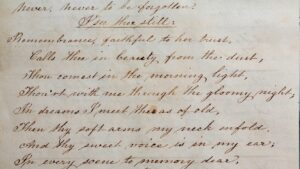 Never, never to be forgotten!
I see thee still:
Remembrance, faithful to her trust,
Calls thee in beauty, from the dust,
Thou comest in the morning light,
Thou'rt with me through the gloomy night,
In dreams I meet thee as of old,
Then thy soft arms my neck enfold,
And thy sweet voice is in my ear;
In every scene to memory dear,